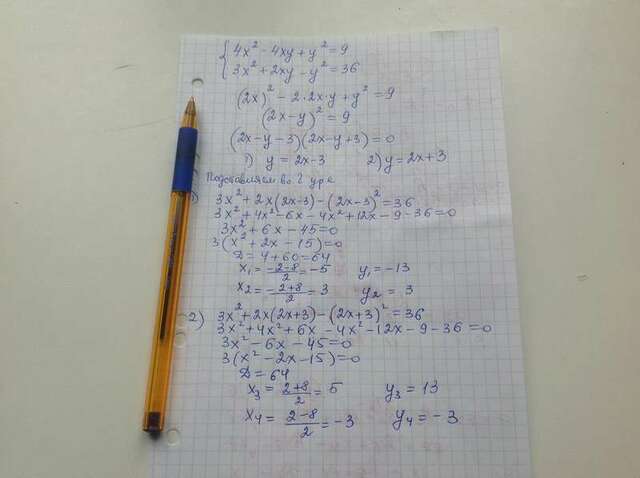 4x² - 4xy + y² = 9
3x² + 2xy - y² = 36
(2x)² - 2·2x·y + y² = 9
(2x-y)² = 9
(2x-y-3)(2x-y+3) = 0
1) y = 2x-3 2) y = 2x+3
Подставляем во 2 ур-е
1) 3x² + 2x(2x-3) - (2x-3)² = 36
3x² + 4x² - 6x - 4x² + 12x - 9 - 36 = 0
3x² + 6x - 45 = 0
3(x² + 2x - 15) = 0
D = 4 + 60 = 64
x₁ = (-2-8)/2 = -5 y₁ = -13
x₂ = (-2+8)/2 = 3 y₂ = 3
2) 3x² + 2x(2x+3) - (2x+3)² = 36
3x² + 4x² + 6x - 4x² - 12x - 9 - 36 = 0
3x² - 6x - 45 = 0
3(x² - 2x - 15) = 0
D = 64
x₃ = (2+8)/2 = 5 y₃ = 13
x₄ = (2-8)/2 = -3 y₄ = -3